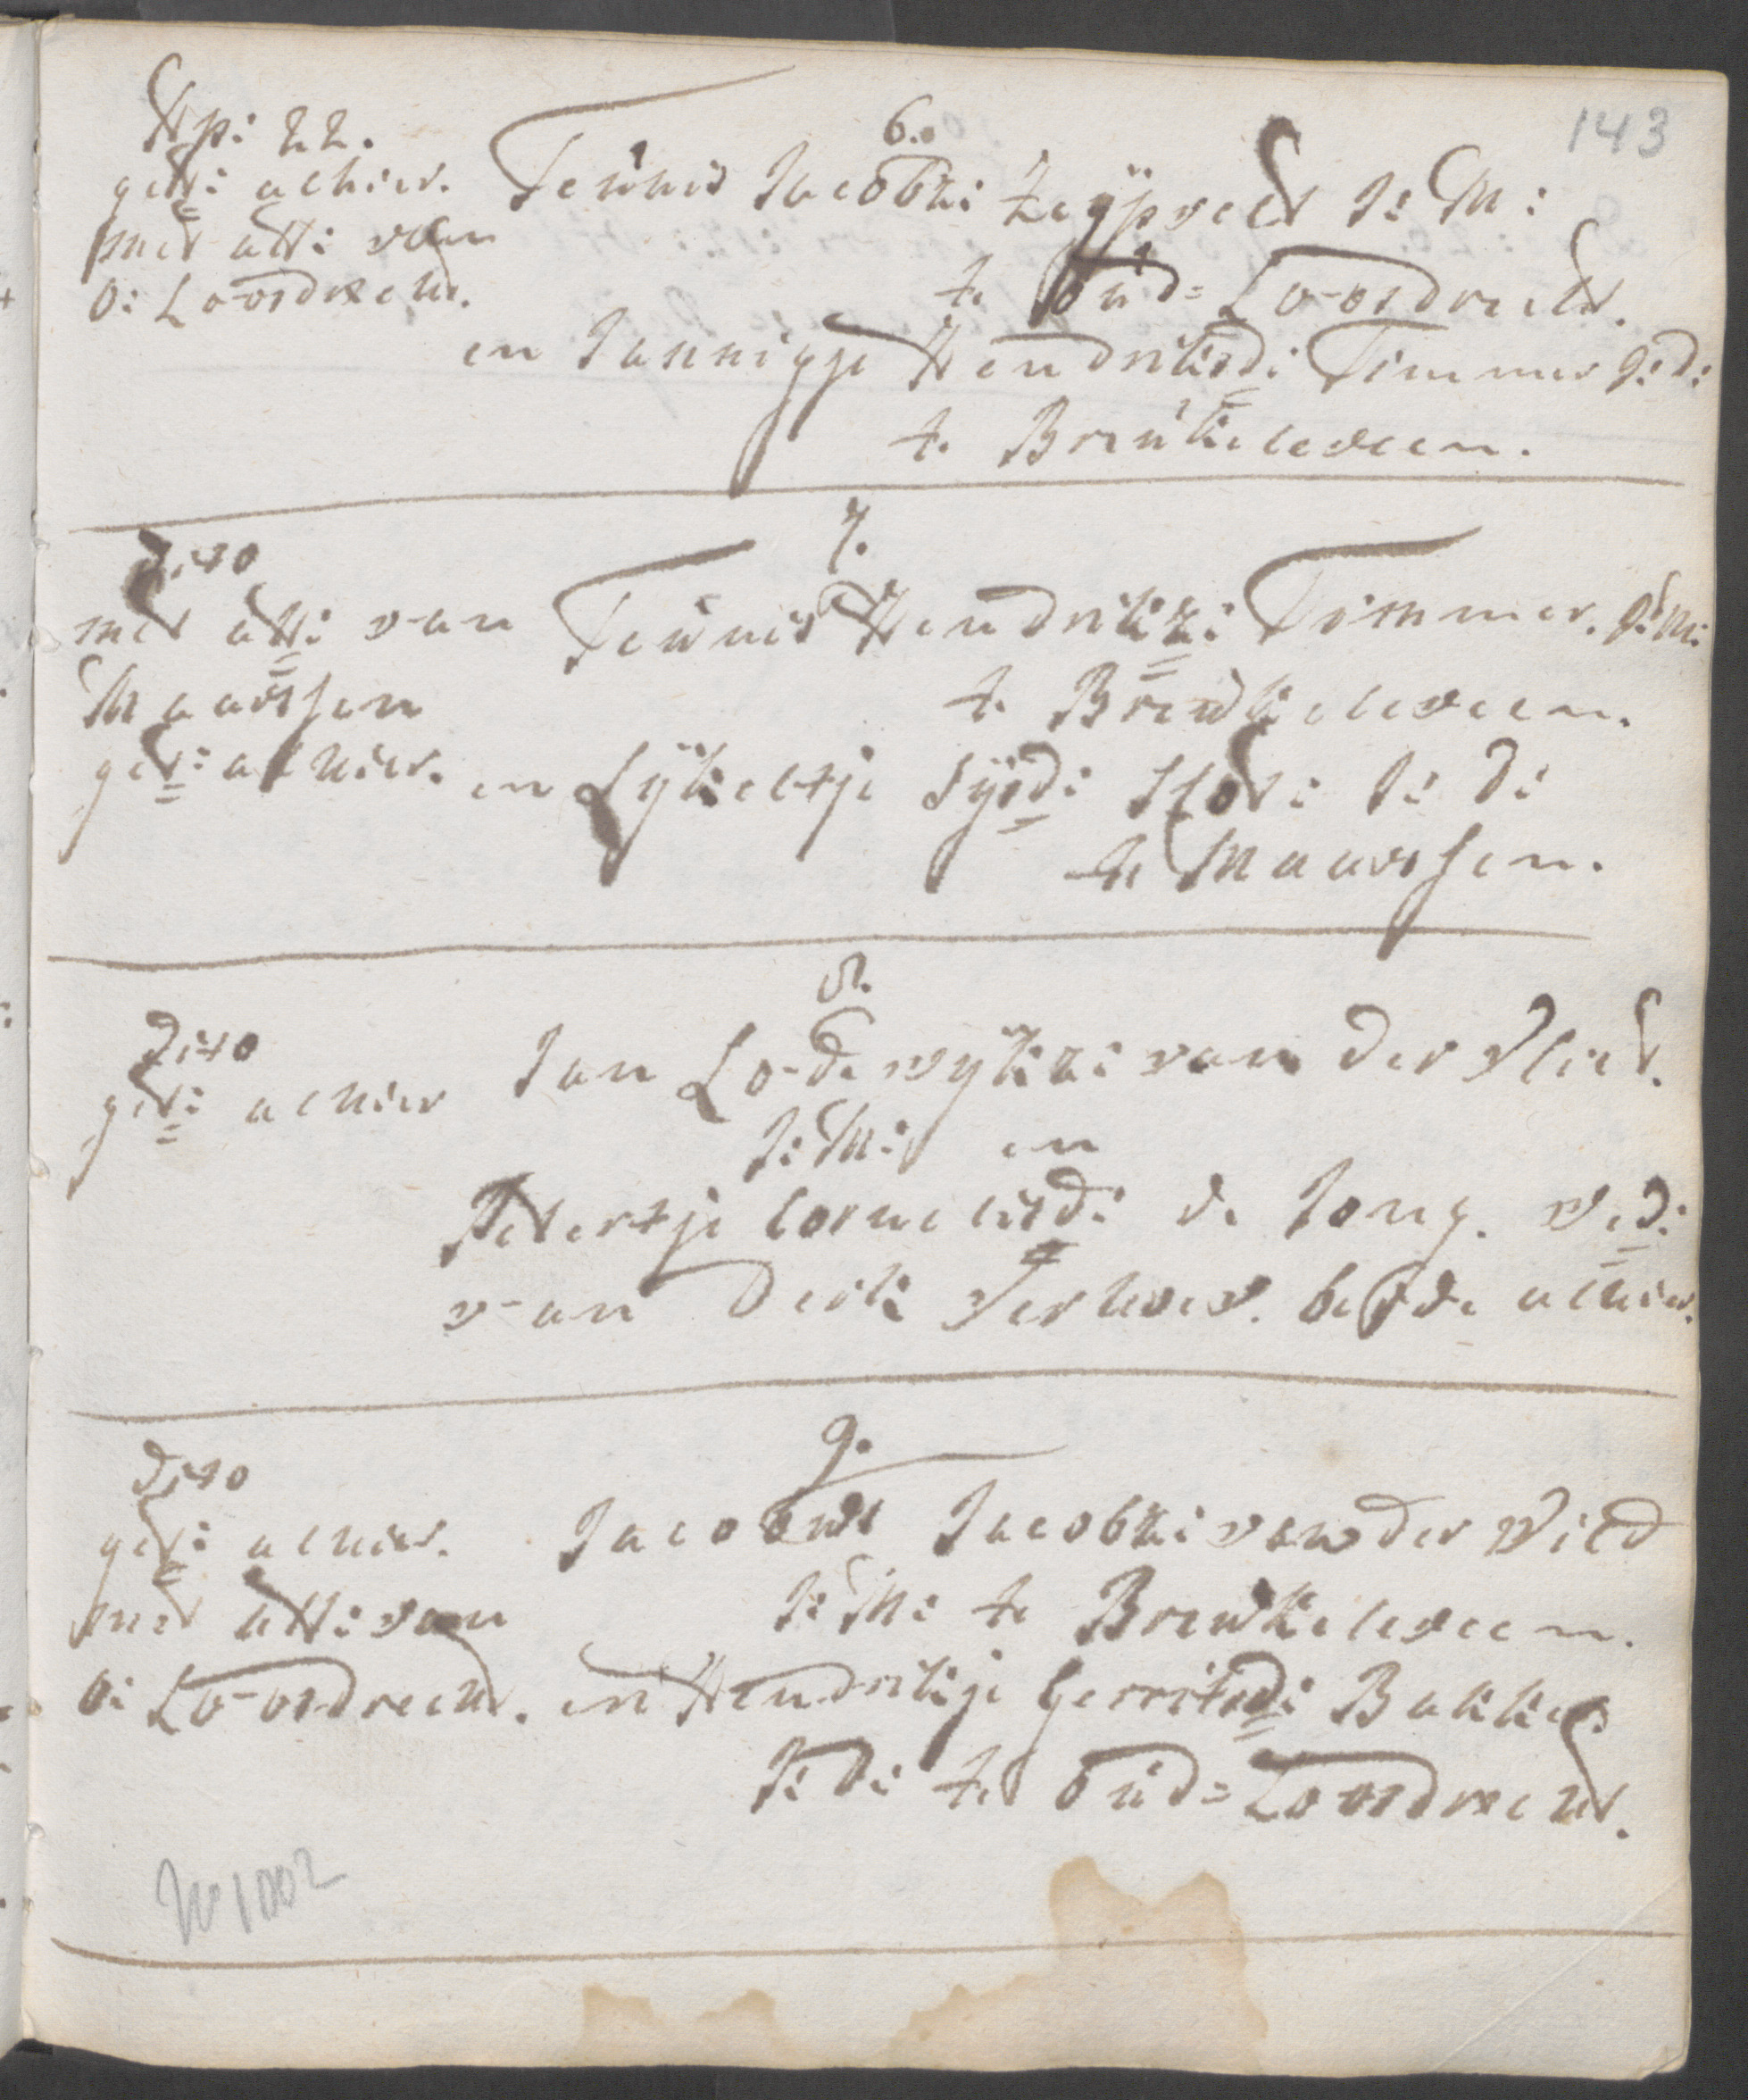 143
Ap: 22.
get: alhier.
met att: van
O: Loosdrecht.
6.
Teunis Jacobz: Zeÿpvelt J: M:
te Oud=Loosdrecht.
en Jannigje Hendriksd: Timmer J: d:
te Breukeleveen.
7.
Dito
met att: van
Maarssen
get: alhier.
Teunis Hendrikz: Timmer. J: M:
te Breukeleveen.
en Sÿkeltje Sÿsd: Slot: J: d:
te Maarssen.
8.
Dito
get: alhier
Jan Lodewÿkz: van der Vliet.
J: M: en
Pietertje Cornelisd: de Jong. Wed:
van Derk Verhoev. beÿde alhier.
9.
Dito
get: alhier.
met att: van
O: Loosdrecht.
Jacobus Jacobz: van der Wild
J: M: te Breukeleveen.
en Hendrikje Gerritsd: Bakker
J: D: te Oud=Loosdrecht.
W1002